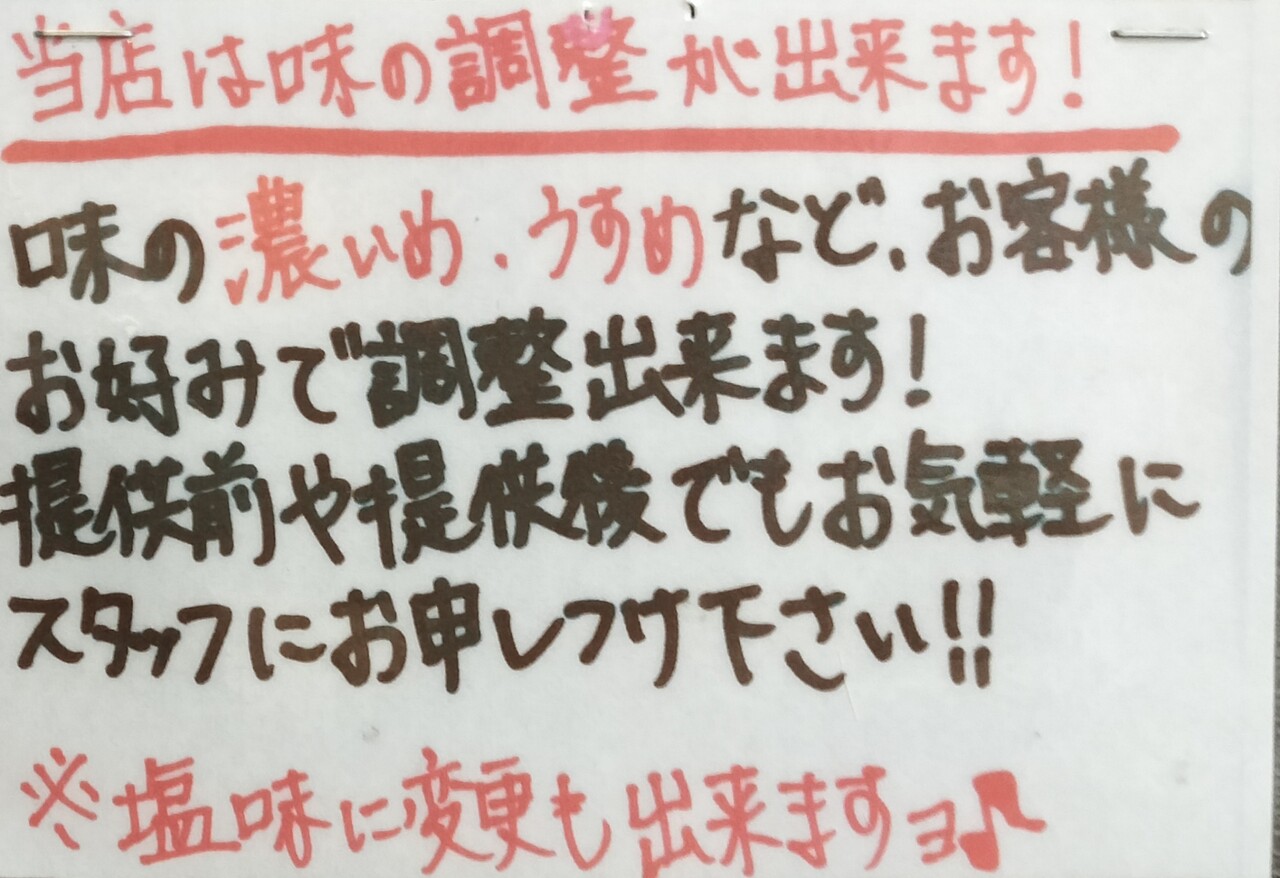 当店は味の調整が出来ます!
味の濃いめ、うすめなど、お客様の
お好みで調整出来ます!
提供前や提供後でもお気軽に
スタッフにお申しつけ下さい!!
※塩味に変更も出来ますョ♪